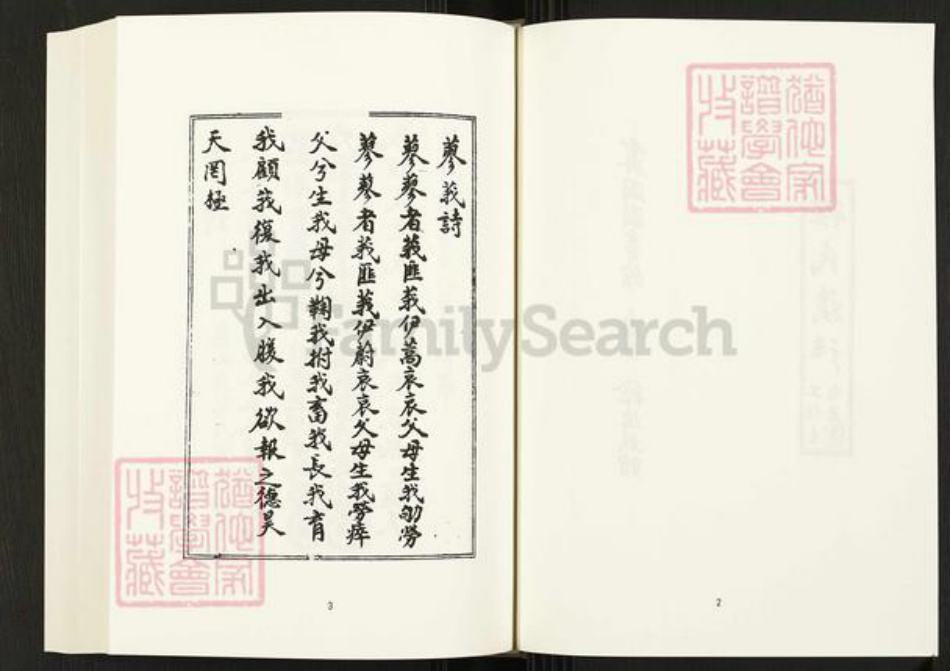 蓼莪詩
蓼蓼者莪匪莪伊蒿哀哀父母生我劬勞
蓼蓼者莪匪莪伊蔚哀哀父母生我勞瘁
父兮生我母兮鞠我拊我畜我長我育
我顧我復我出入腹我欲報之德昊
天罔極
3
2
猶他家
譜學會
收藏
猶他家
譜學會
收藏
FamilySearch